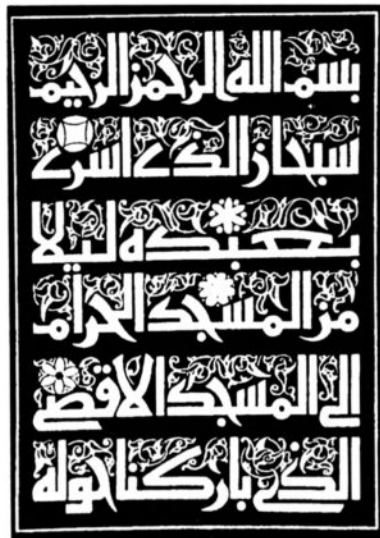 بسم الله الرحمن الرحيم
سبحان الذي اسرى
بعبده ليلا
من المسجد الحرام
الى المسجد الاقصى
الذي باركنا حوله